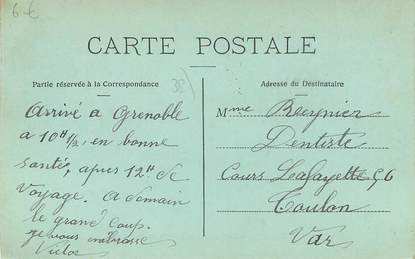 6 €
CARTE POSTALE
Partie réservée à la Correspondance
38
Adresse du Destinataire
Arrivé a Grenoble
a 10H 1/2, en bonne
santé, apres 12H de
Voyage. A demain
le grand Coup.
je vous embrasse
Victor
Mme Reynier
Dentiste
Cours Lafayette 96
Toulon
Var